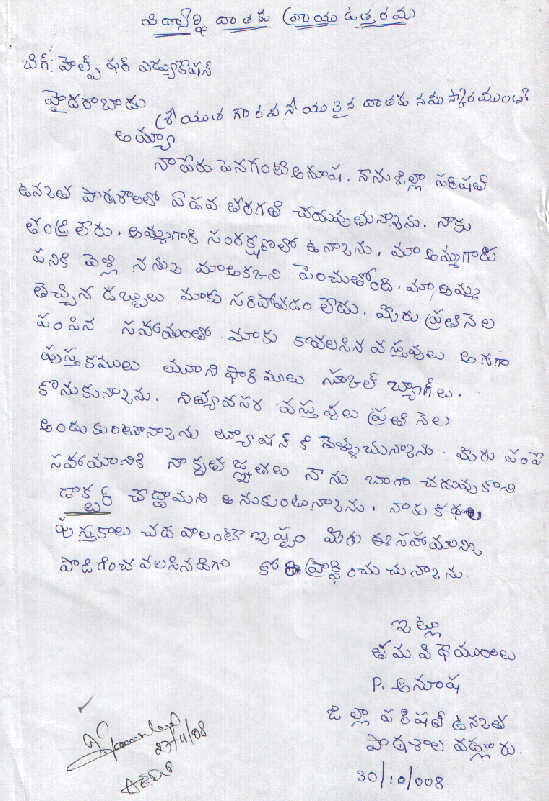 విద్యార్థి దాతకు వ్రాయు ఉత్తరము
బిగ్: హెల్ప్ ఫర్ ఎడ్యుకేషన్
హైదరాబాదు
శ్రీయుత గౌరవనీయులైన దాతకు నమస్కారములతో
అయ్యా
నా పేరు పెనగంటి అనూష. నేను జిల్లా పరిషత్
ఉన్నత పాఠశాలలో ఏడవ తరగతి చదువుతున్నాను. నాకు
తండ్రి లేరు. అమ్మగారి సంరక్షణలో ఉన్నాను. మా అమ్మగారు
పనికి వెళ్లి నన్ను మా అక్కని పెంచుతోంది. మా అమ్మ
తెచ్చిన డబ్బులు మాకు సరిపోవడం లేదు. మీరు ప్రతి నెల
పంపిన సహాయంతో మాకు కావలసిన వస్తువులు అనగా
పుస్తకములు యూనిఫారములు స్కూల్ బ్యాగ్‌లు.
కొనుకున్నాను. నిత్యావసర వస్తువులు ప్రతి నెల
అందుకుంటున్నాను ట్యూషన్ కి వెళ్ళుచున్నాను. మీరు పంపే
సహాయానికి నా కృతజ్ఞతలు నేను బాగా చదువుకొని
డాక్టర్ చేద్దామని అనుకుంటున్నాను. నాకు కథల
పుస్తకాలు చదవాలంటే ఇష్టం మీరు ఈ సహాయాన్ని
పొడిగించవలసినదిగా కోరి ప్రార్థించుచున్నాను.
ఇట్లు
తమ విధేయురాలు
P. అనూష
జిల్లా పరిషత్ ఉన్నత
పాఠశాల వడ్లూరు.
27/11/08
30/10/008